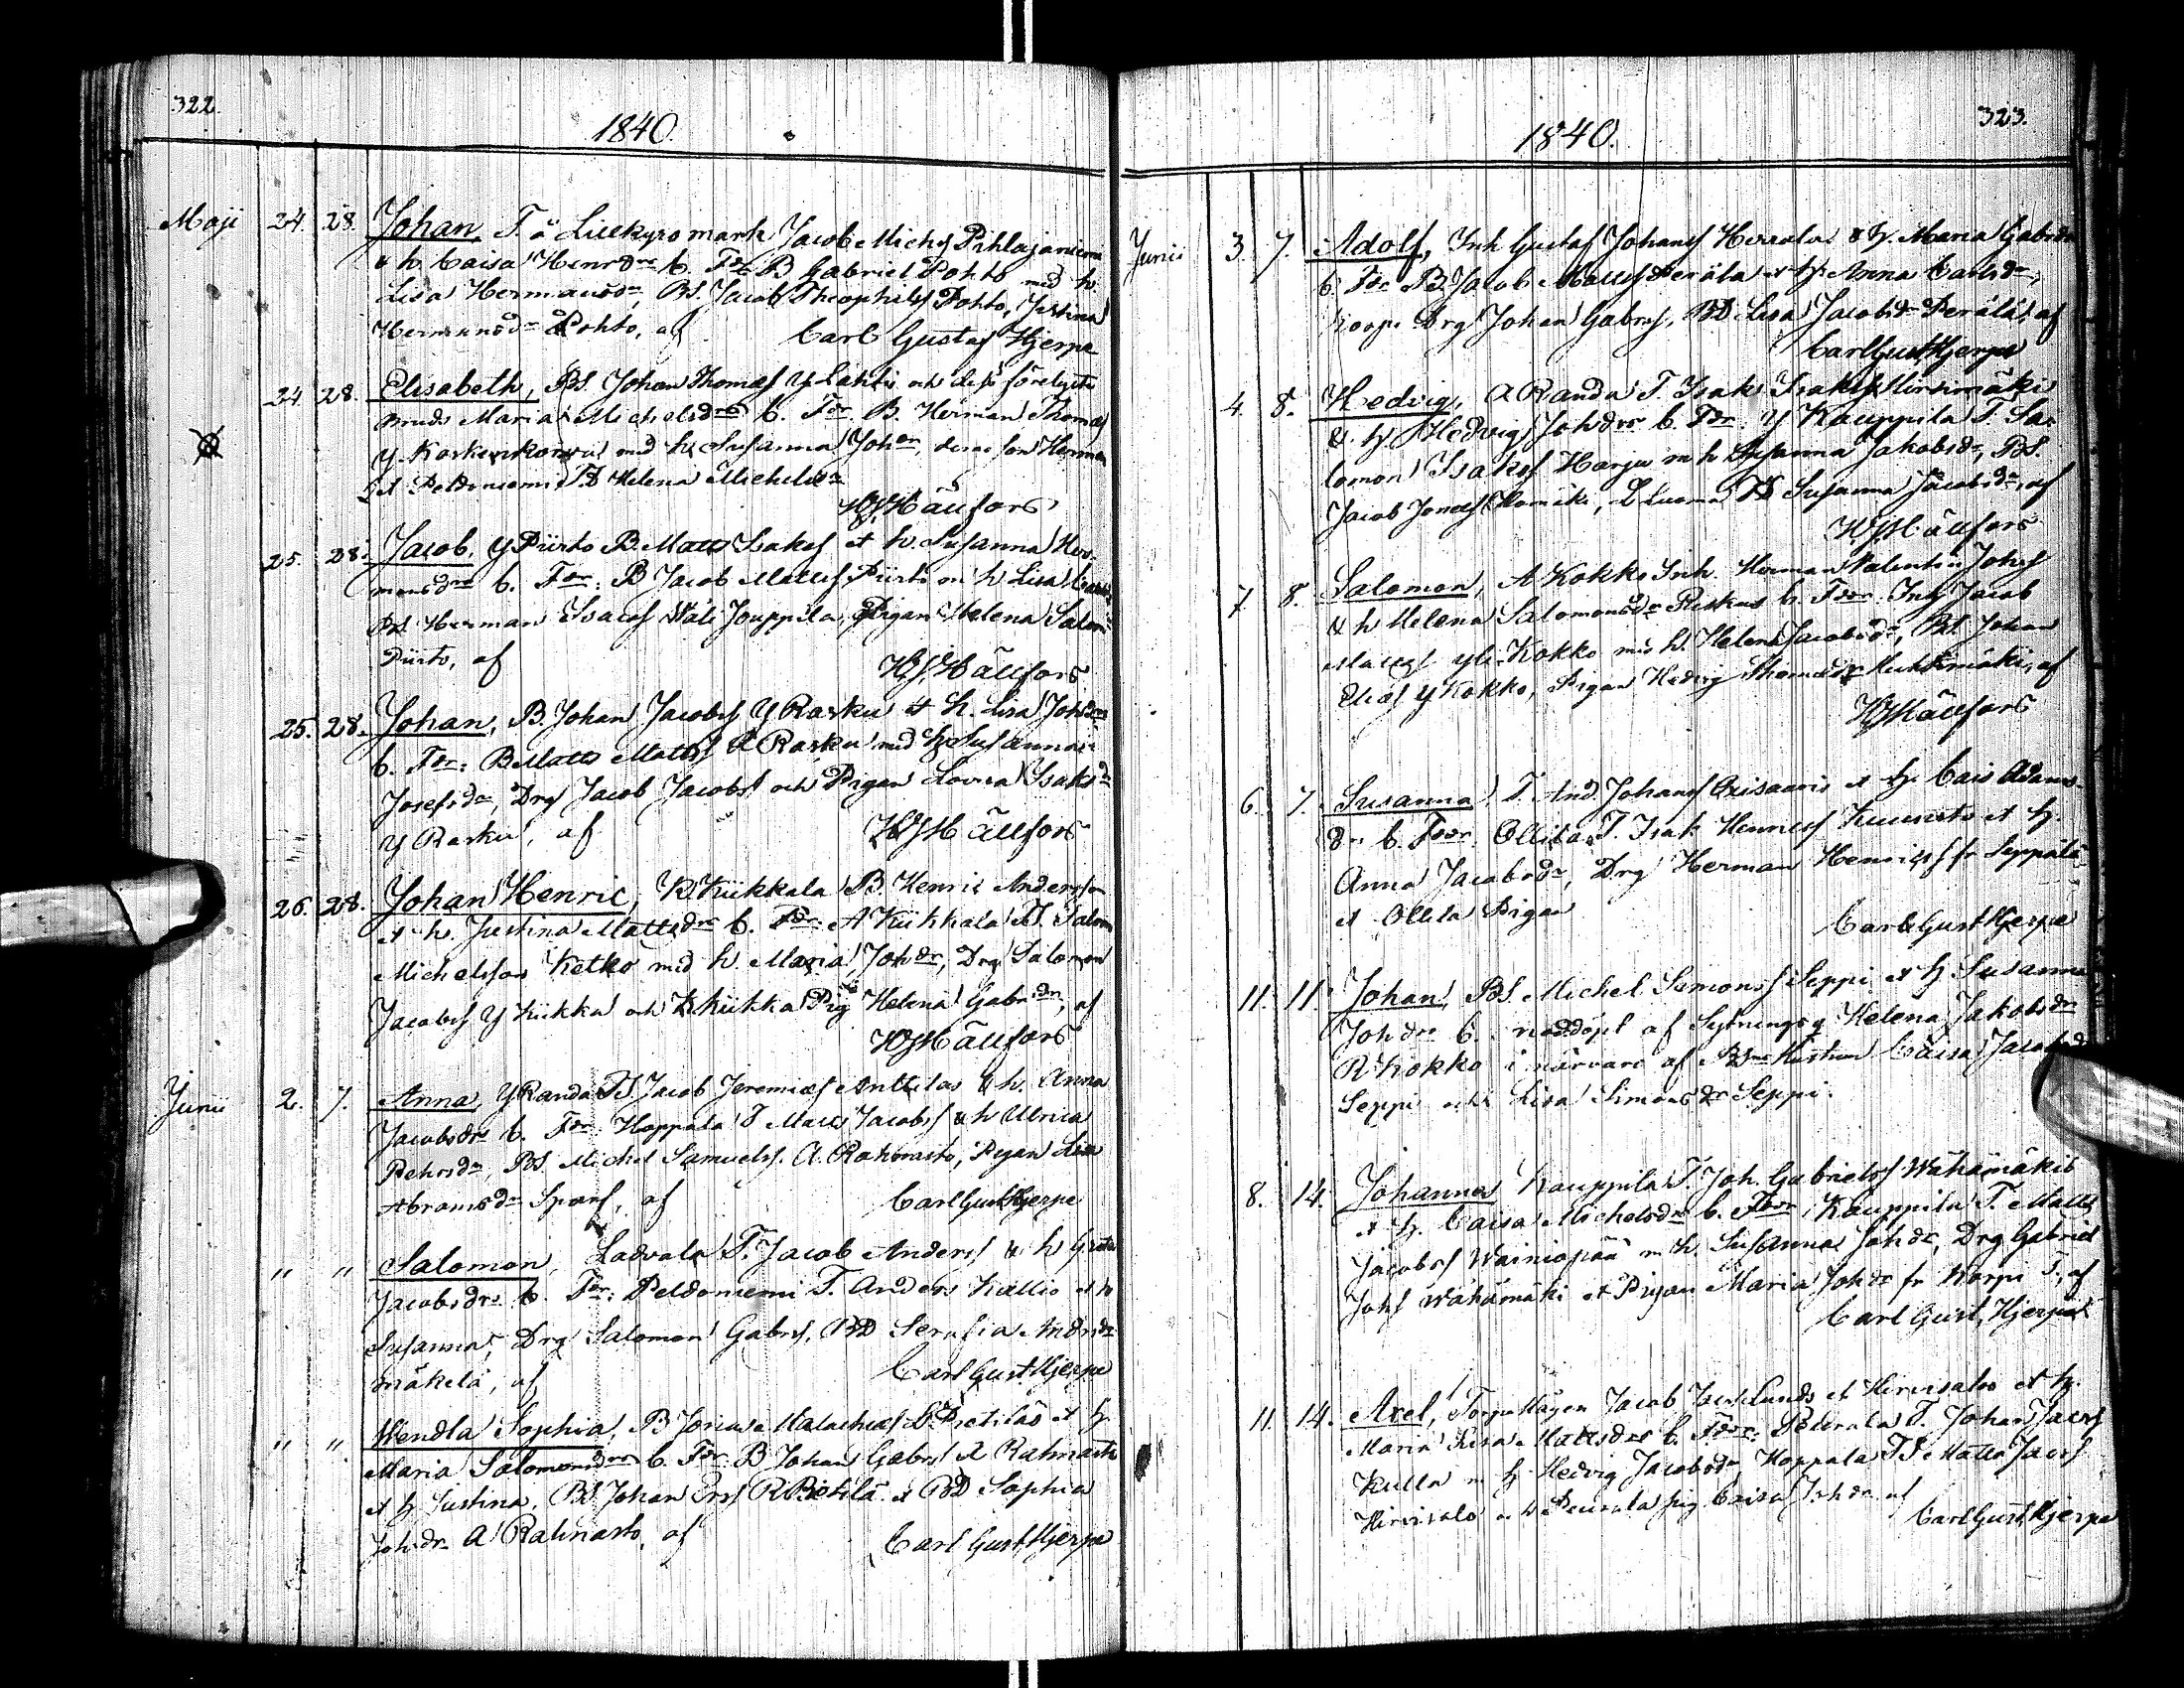 322.
1840.
Maji 24. 28. Johan, T. å Lillkyro mark Jacob Michs Pihlajaniemi
& h. Caisa Henrdrs b. Fdr: B Gabriel Pohto med h.
Lisa Hermansdr, BS. Jacob Theophilss Pohto, Justina
Hermansdr Pohto, af Carl Gustaf Hjerpe
24. 28. Elisabeth, BS. Johan Thomæs Y Lahti och dess
Maria Michelsdrs b. Fdr. B. Herman Thomæs
Y. Koskenkorva med h. Susanna Johdr, Herman
Peldoniemi BD Helena Michelsdr
HJHällfors
25. 28. Jacob, Y Piirto B. Matts Isakss et h. Susanna Her-
mansdrs b. Fdr: B Jacob Mattss Piirto m h Lisa
BS. Herman Isacss Wäli Jouppila, Pigan Helena Salom
Piirto, af HJHällfors
25. 28. Johan, B. Johan Jacobss Y Rasku et h. Lisa Johdrs
b. Fdr: B Matts Mattss A Rasku med h Susanna
Josefsdr, Drg Jacob Jacobss och Pigan Lovisa Isaksdr
Y Rasku, af HJHällfors
26. 28. Johan Henric, R Kiikkala B Henric Andersson
et h. Justina Mattsdrs b. Fdr: A Kiikkala T. Salom
Michelsson Ketko med h. Maria Johdr, Drg Salomon
Jacobss Y Kiikka och K Kiikka Pig Helena Gabrsdr, af
HJHällfors
Junii 2. 7. Anna, Y Randa TS Jacob Jeremiæs Anttilas & h. Anna
Jacobsdrs b. Fdr: Hoppala T Matts Jacobss & h Ulrica
Pehrsdr, BS. Michel Samuelss. A. Rahnasto, Pigan Lisa
Abramsdr Sparf, af Carl Gust Hjerpe
" " Salomon, Ladvala T. Jacob Anderss & h Greta
Jacobsdrs b. Fdr: Peldoniemi T. Anders Kallio et h
Susanna, Drg Salomon Gabrss, BD Serafia Andrsdr
Mäkelä, af Carl Gust Hjerpe
" " Wendla Sophia, B Jonas Malachiæs L. Pietiläs et h
Maria Salomonsdrs b. Fdr: B Johan Gabrss A Rahnasto
et h Justina, BS. Johan Erss R Pietilä et BD Sophia
Johdr A Rahnasto, af Carl Gust Hjerpe
323.
1840.
Junii 3. 7. Adolf, Inh Gustaf Johanss Herralas & h. Maria Gabrsdrs
b. Fdr B. Jacob Mattss Perälä et h. Anna Carlsdr,
Drg Johan Gabrss, BD Lisa Jacobsdr Perälä, af
Carl Gust Hjerpe
4. 8. Hedvig, A Randa T. Isak Isakss
& h. Hedvig Johdrs b. Fdr: Y Kauppila T. Sa-
lomon Isakss Harju m h Susanna Jakobsdr, BS.
Jacob Jonæs L Luoma BD Susanna Jacobsdr, af
HJHällfors
7. 8. Salomon, A Kokko Inh. Herman Valentin Johss
& h Helena Salomonsdr b. Fdr: Jacob
Mattss Yli-Kokko med h. Helena Jacobsdr, BS. Johan
Eliæs Y Kokko, Pigan Hedvig Thomædr af
HJHällfors
6. 7. Susanna, T. And. Johanss et h. Caisa Adams-
drs b. Fdr: Ollila T. Isak Henricss Kuusisto et h.
Anna Jacobsdr, Drg Herman Henricss fr Seppälä
et Ollila Pigan Carl Gust Hjerpe
11. 11. Johan, BS. Michel Simonss Seppi et h Susanna
Johdrs b. nöddöpt af Sytningsq Helena Jakobsdr
R Kokko i närvaro af Hustrun Caisa Jacobsdr
Seppi och Lisa Simonsdr Seppi.
8. 14. Johanna Kauppila T. Joh. Gabrielss Wähämäkis
et h. Caisa Michelsdrs b. Fdr: Kauppila T. Matts
Jacobss Wainiopää m h. Susanna Johdr, Drg Gabriel
Johss Wähämäki et Pigan Maria Johdr fr Korpi T., af
Carl Gust. Hjerpe
11. 14. Axel, Jacob Lunds et Hirvisalos et h.
Maria Lisa Mattsdrs b. Fdr: Peurala T. Johan Jacss
Kulla m h Hedvig Jacobsdr Hoppala TS Matts Jacss
Hirvisalo och Peurala pig Caisa Johdr af
Carl Gust Hjerpe